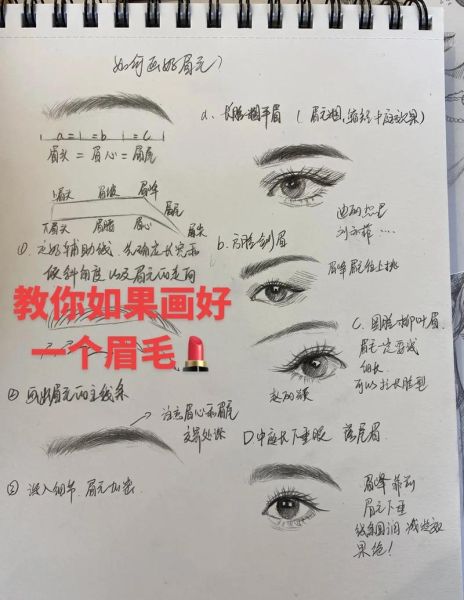 如何画好眉毛
a = b = c
眉头 = 眉心 = 眉尾
上眉头 眉坡 眉峰
眉尾
下眉头 眉腰 眉心 眉尖
① 定好辅助线，先确定长宽和
倾斜角度以及眉毛的走向
教你如果画好
一个眉毛💄
② 画出眉毛的主线条
注意眉心和眉尾
交界处深
③ 深入细节，眉毛加密
a、长脸粗平眉（眉毛粗，缩短中庭效果）
迪丽热巴
刘亦菲……
b、方脸剑眉
眉峰眉尾往上挑
C、圆脸柳叶眉
眉毛一定要试
细长
可以拉长脸型
赵丽颖
D 中庭长下垂眼 落尾眉
眉峰靠前
眉毛下垂
线条圆润
果绝！